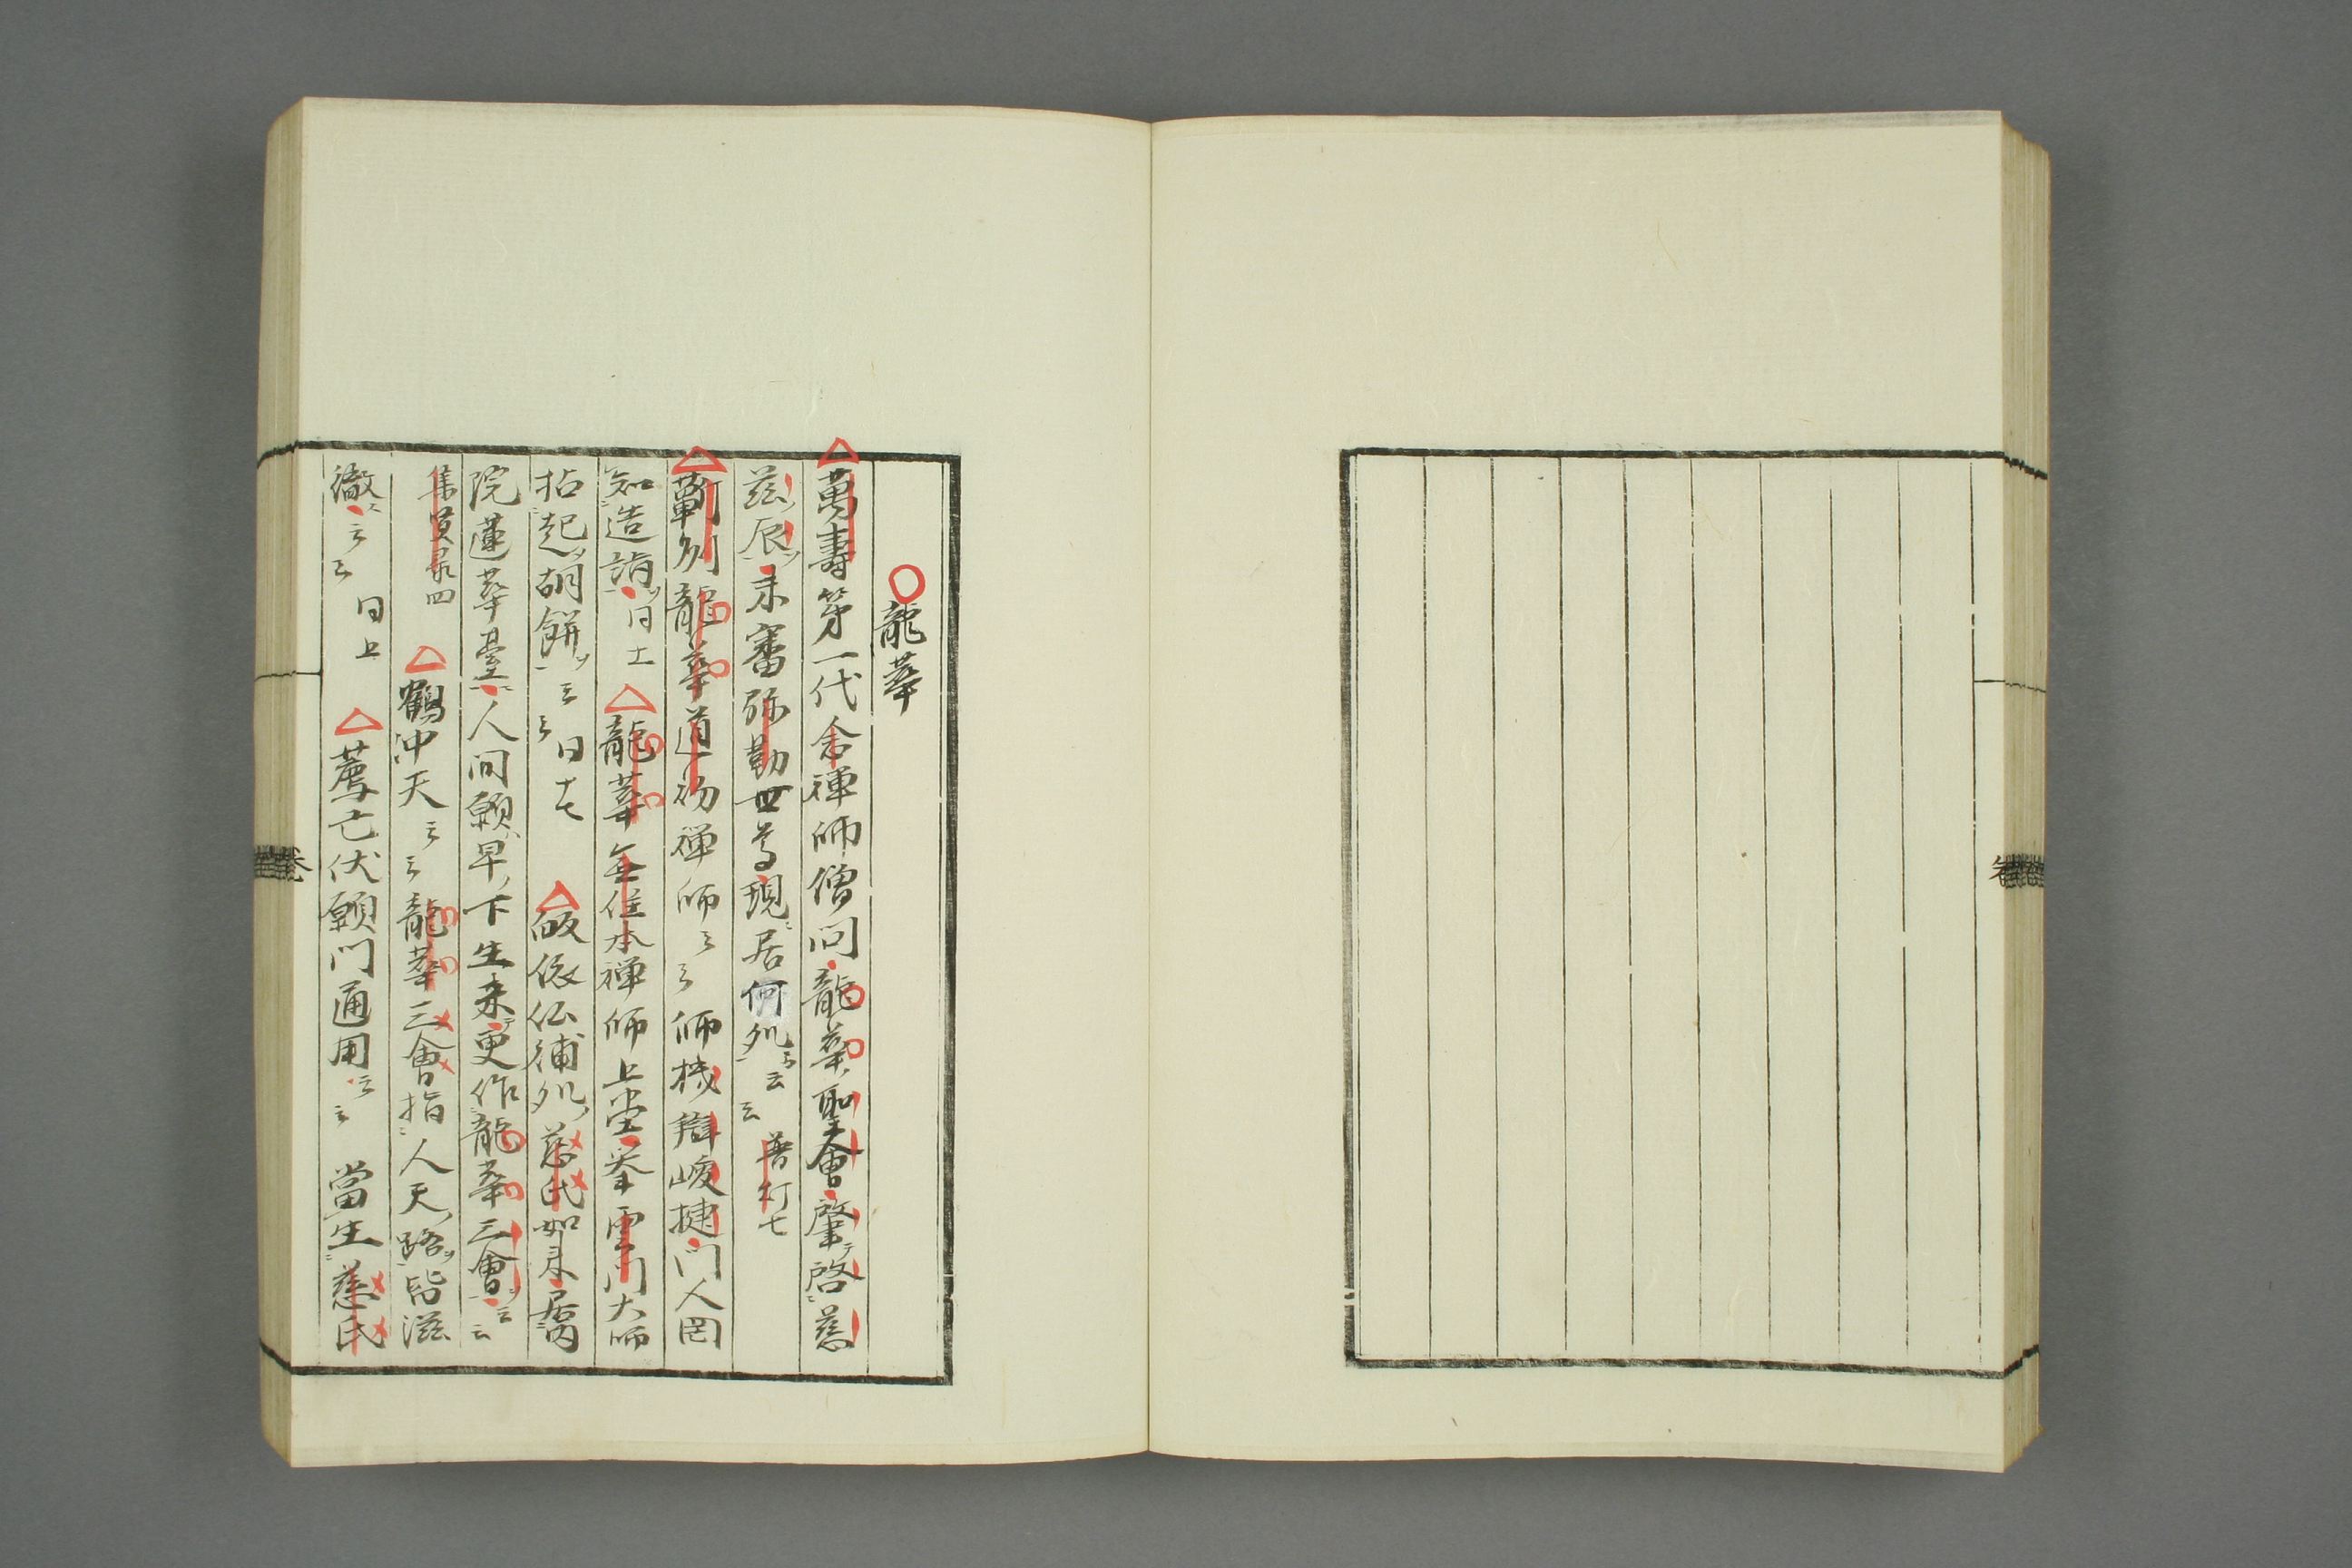 龍華
萬壽第一代念禅師僧問龍華聖會肇啓慈
茲辰未審弥勒世尊現居何処云云 普灯七
蘄州龍華道初禅師云云師機辯峻捷門人罔
知造詣 同十一 龍華無住本禅師上堂挙雲門大師
拈起胡餅云云 同十七 皈依仏補処慈氏如来居内
院蓮華臺人間願早下生来更作龍華三會云云
鶴冲天云云龍華三會指人天路皆滋
徹云云 同上 薦亡伏願門通用云云 當生慈氏
卷